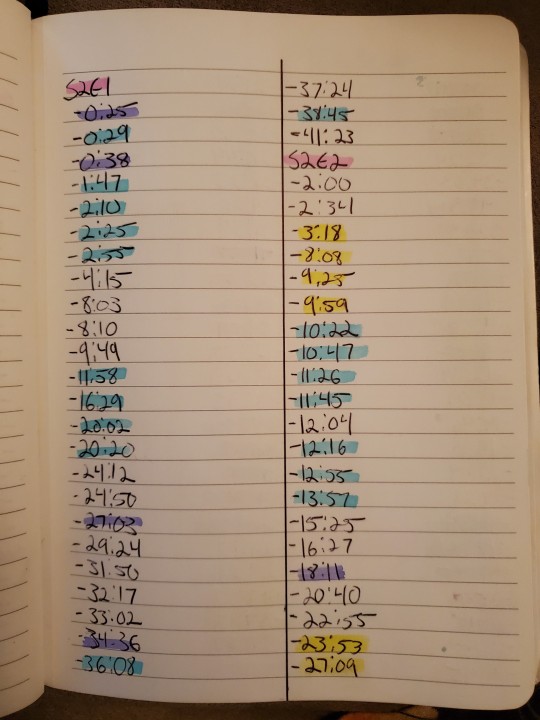 S2E1
-0:25
-0:29
-0:38
-1:47
-2:10
-2:25
-2:55
-4:15
-8:03
-8:10
-9:49
-11:58
-16:29
-20:02
-20:20
-24:12
-24:50
-27:03
-29:24
-31:50
-32:17
-33:02
-34:36
-36:08
-37:24
-38:45
-41:23
S2E2
-2:00
-2:34
-3:18
-8:08
-9:25
-9:59
-10:22
-10:47
-11:26
-11:45
-12:04
-12:16
-12:55
-13:57
-15:25
-16:27
-18:11
-20:40
-22:55
-23:53
-27:09